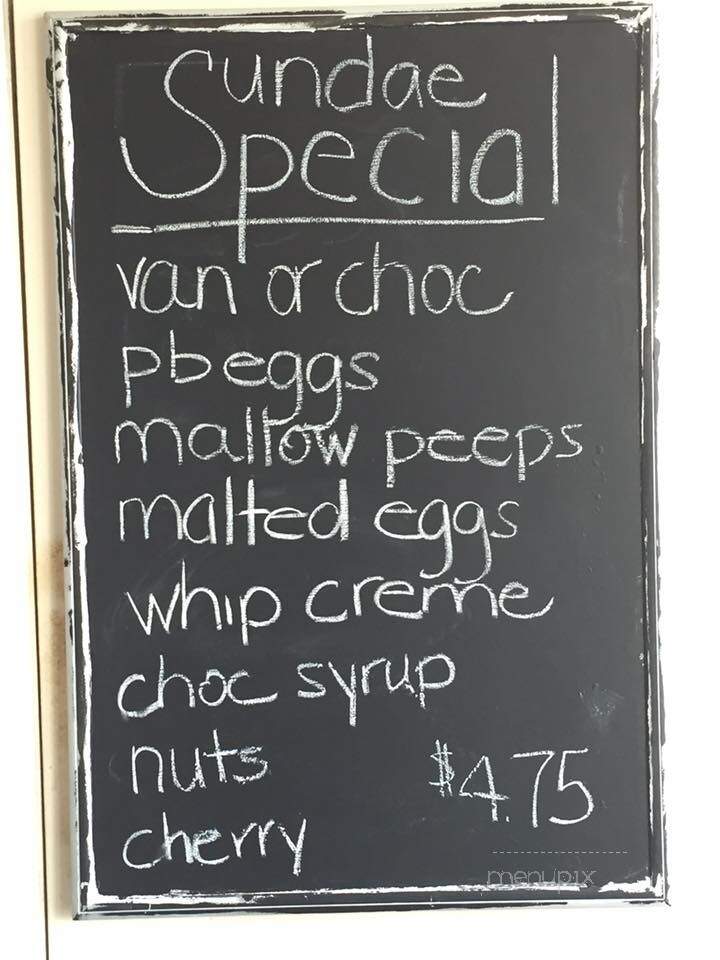 Sundae
Special
van or choc
pb eggs
mallow peeps
malted eggs
whip creme
choc syrup
nuts
$4.75
cherry
menupix